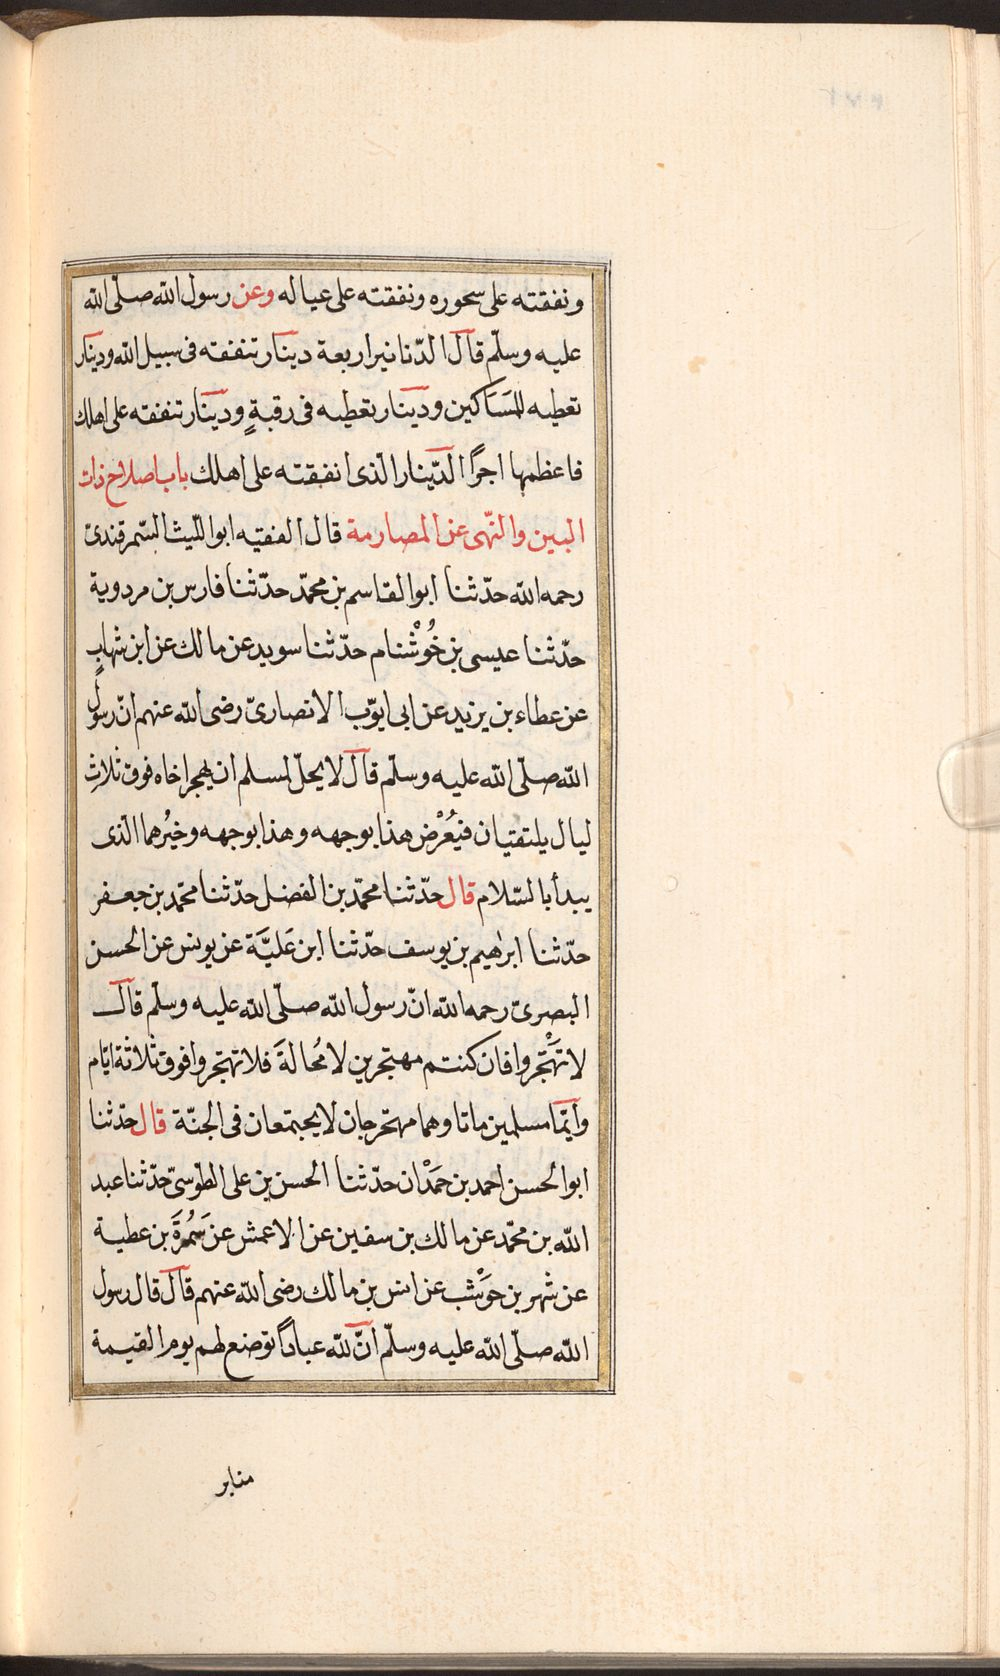 ونفقته على سحوره ونفقته على عياله وعن رسول الله صلّى الله
عليه وسلّم قال الدّنانير اربعة دينار تنفقه فى سبيل الله ودينار
تعطيه للمَسَاكين ودينار تعطيه فى رقبةٍ ودينار تنفقه على اهلك
فاعظمها اجرًا الدّينار الذى انفقته على اهلك باب اصلاح ذات
البين والنّهى عن المصارمة قال الفقيه ابو اللّيث السّمرقندىّ
رحمه الله حدّثنا ابو القاسم بن محمّد حدّثنا فارس بن مردوية
حدّثنا عيسى بن خُوشْنام حدّثنا سويد عن مالك عن ابن شهابٍ
عن عطاء بن يزيد عن ابى ايّوب الانصارىّ رضى الله عنهم انّ رسول
الله صلّى الله عليه وسلّم قال لا يحلّ لمسلم ان يهجر اخاه فوق ثلاثِ
ليال يلتقيان فيُعْرْض هذا بوجهه وهذا بوجهه وخيُرهما الّذى
يبدأ بالسّلام قال حدّثنا محمّد بن الفضل حدّثنا محمّد بن جعفر
حدّثنا ابرٰهيم بن يوسف حدّثنا ابن عَليَّة عن يونس عن الحسن
البصرىّ رحمه الله انّ رسول الله صلّى الله عليه وسلّم قال
لا تَهْتَجروا فان كنتم مهتجرين لا مُحالةَ فلا تهتجروا فوق ثلاثة ايّام
وايّما مسلمين ماتا وهما مهتجرجان لا يجتمعان فى الجنّة قال حدّثنا
ابو الحسن احمد بن حَمْدَان حدّثنا الحسن بن على الطّوسىّ حدّثنا عبد
الله بن محمّد عن مالك بن سفين عن الاعمش عن سَمُرَة بن عطية
عن شهر بن حَوْشب عن انس بن مالك رضى الله عنهم قال قال رسول
الله صلّى الله عليه وسلّم انّ لله عبادًا توضع لهم يوم القيمة
منابر